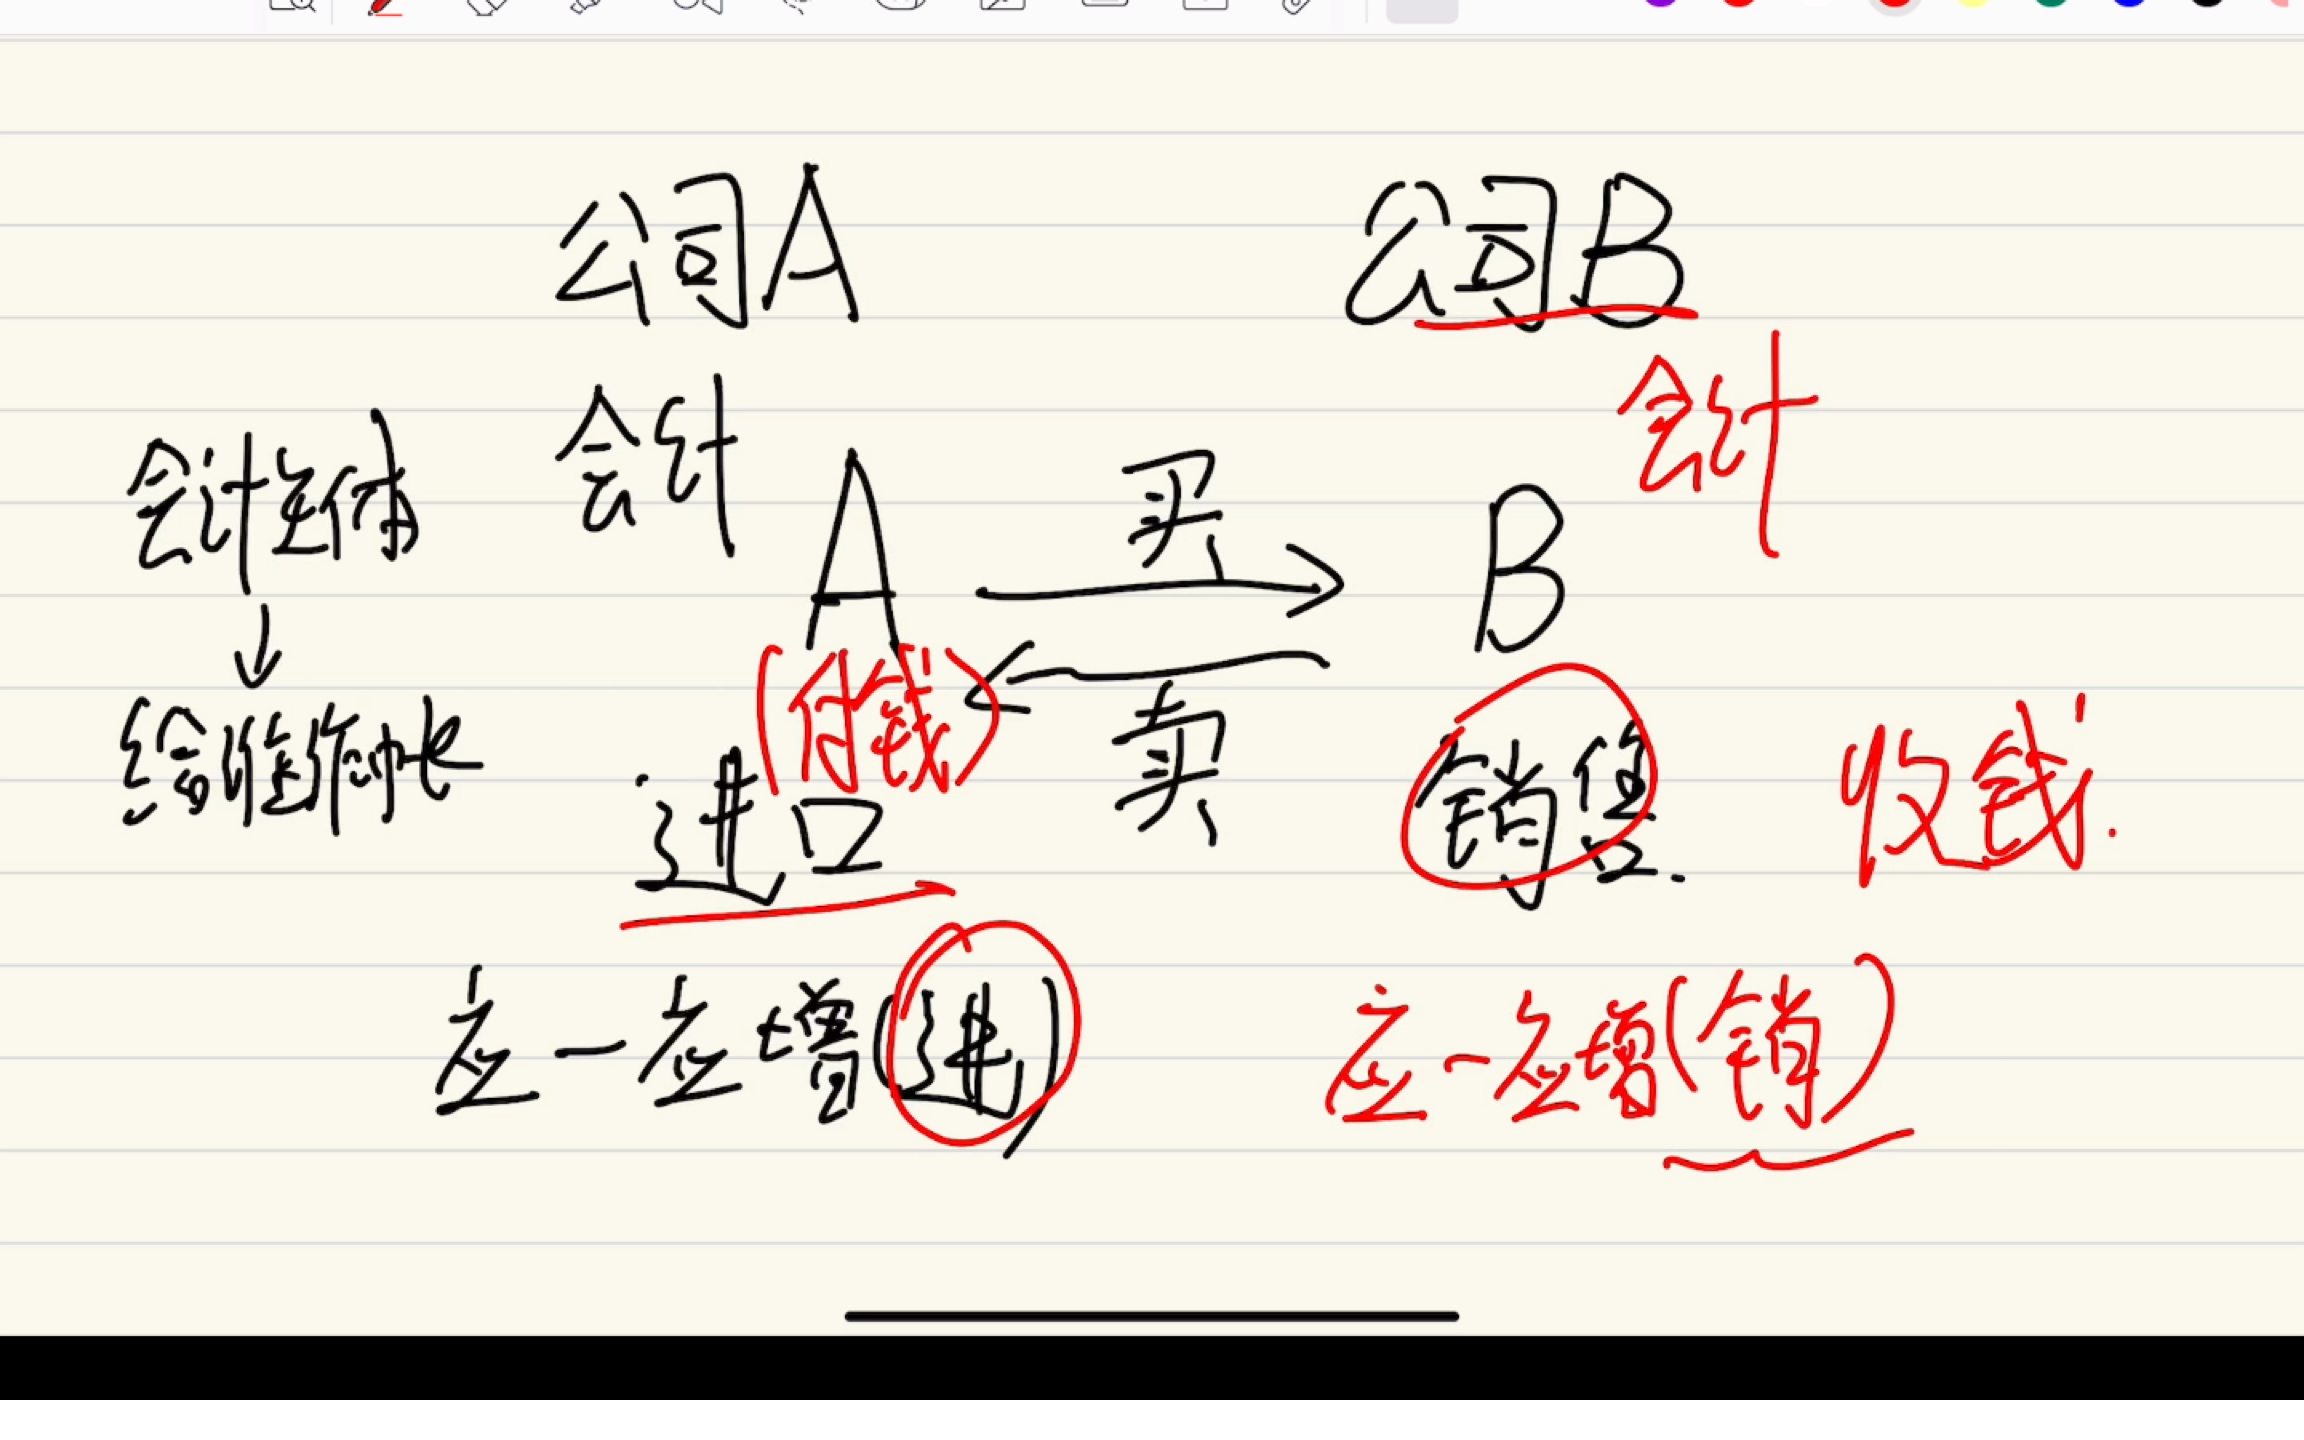 公司A 公司B
会计 会计
会计主体 A 买 B
给谁做帐 (付钱) 卖
进口 销售. 收钱.
应一应增(进) 应一应增(销)